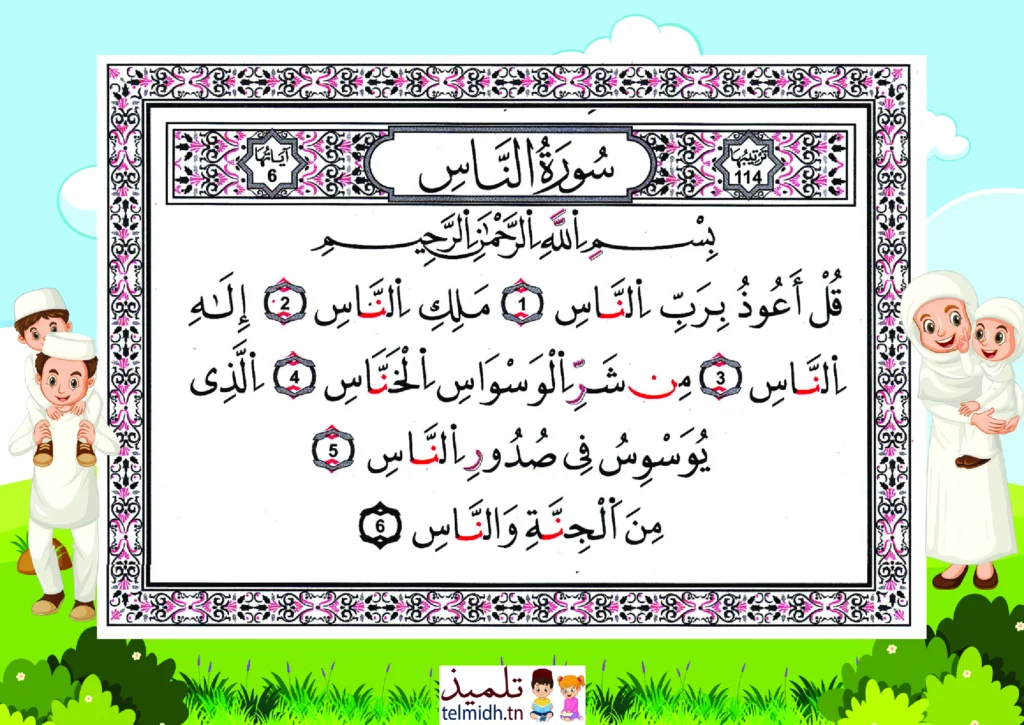 ترتيبها
114
سُورَةُ النَّاسِ
آياتها
6
بِسْمِ اِللَّهِ اِلرَّحْمَٰنِ اِلرَّحِيمِ
قُلْ أَعُوذُ بِرَبِّ اِلنَّاسِ 1 مَلِكِ اِلنَّاسِ 2 إِلَٰهِ
اِلنَّاسِ 3 مِن شَرِّ اِلْوَسْوَاسِ اِلْخَنَّاسِ 4 اِلَّذِى
يُوَسْوِسُ فِى صُدُورِ اِلنَّاسِ 5
مِنَ اَلْجِنَّةِ وَالنَّاسِ 6
تلميذ
telmidh.tn